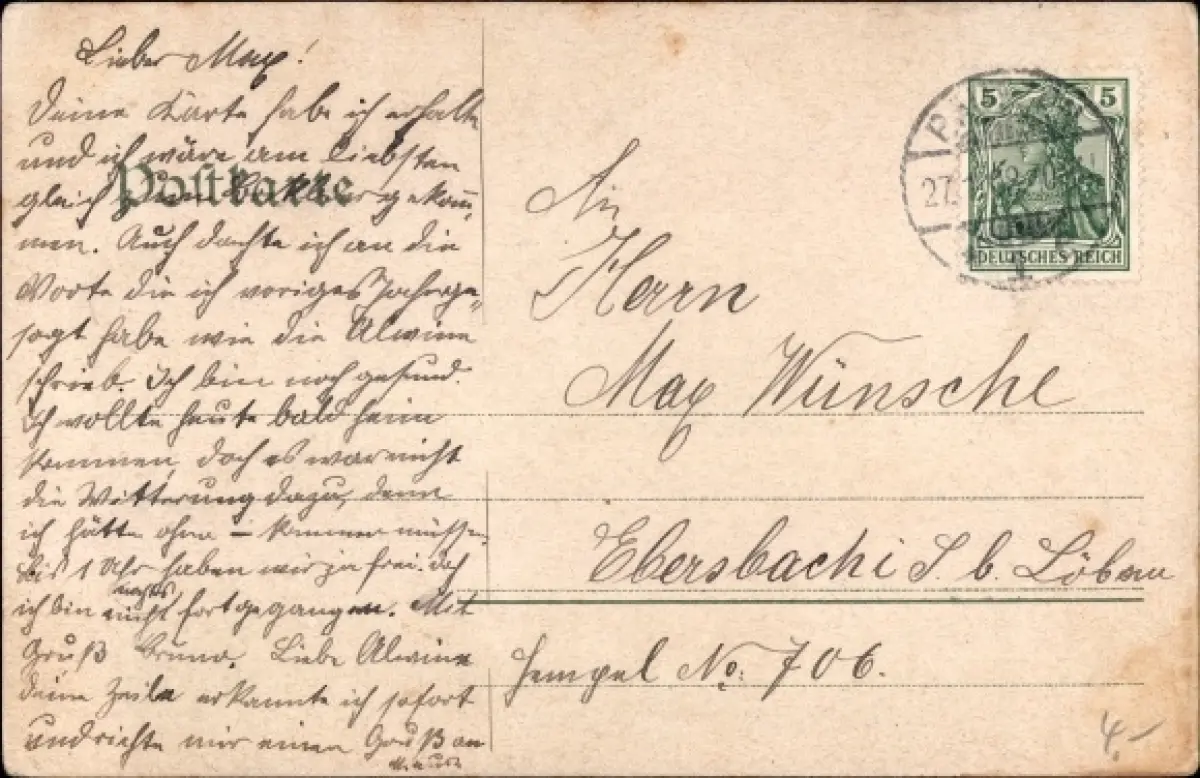 Lieber Max!
Deine Karte habe ich erhalten
und ich wäre am Liebsten
gleich zum gekom̅
men. Auch dachte ich an die
Worte die ich voriges Jahr ge„
sagt habe wie die Alwine
schrieb. Ich bin noch gesund.
Ich wollte heute bald heim
kommen, doch es war nicht
die Witterung dazu, denn
ich hätte ohne – kommen müssen,
bis 1 Uhr haben wir ja frei. doch
ich bin nicht fortgegangen. Mit
Gruß Bruno. Liebe Alwine
deine Zeile erkannte ich sofort
und richte mir einen Gruß an
Postkarte
5 5
DEUTSCHES REICH
27.
An
Herrn
Max Wünsche
Ebersbach i S. b. Löbau
Hempel No: 706.
4,-